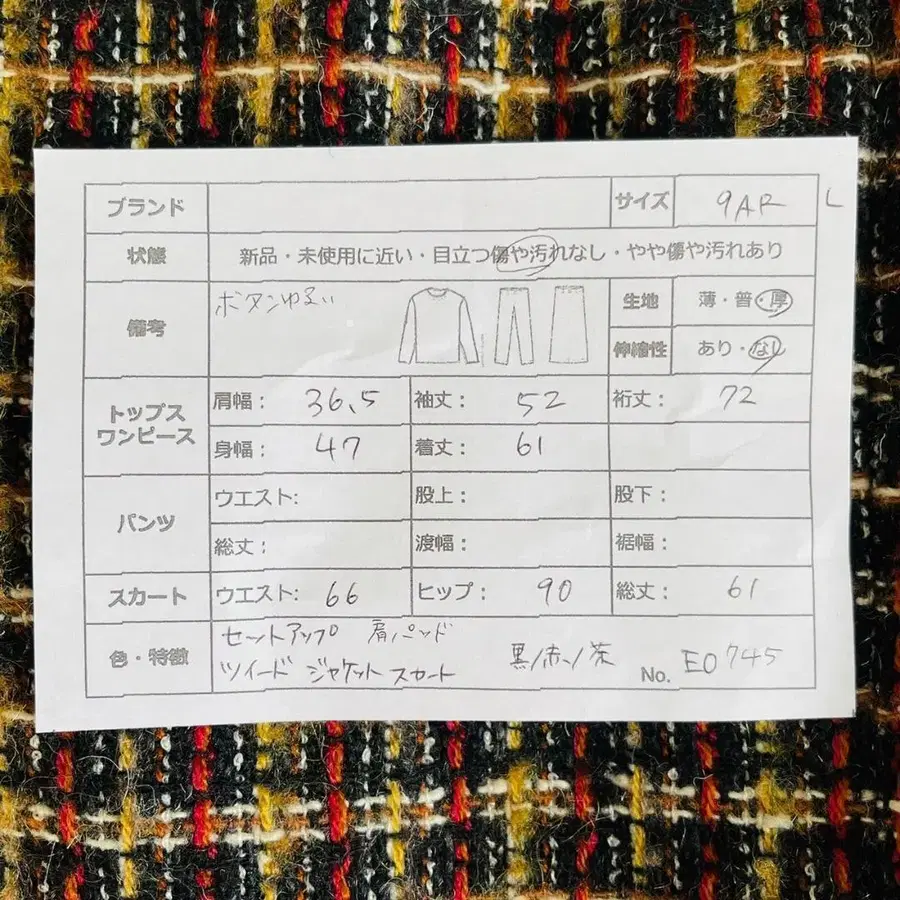 ブランド サイズ 9AR L
状態 新品・未使用に近い・目立つ傷や汚れなし・やや傷や汚れあり
備考 ボタンゆるい 生地 薄・普・厚
伸縮性 あり・なし
トップス
ワンピース
肩幅： 36.5 袖丈： 52 裄丈： 72
身幅： 47 着丈： 61
パンツ
ウエスト: 股上： 股下：
総丈： 渡幅： 裾幅：
スカート ウエスト: 66 ヒップ： 90 総丈： 61
色・特徴
セットアップ 肩パッド
ツイード ジャケット スカート 黒/赤/茶
No. E0745